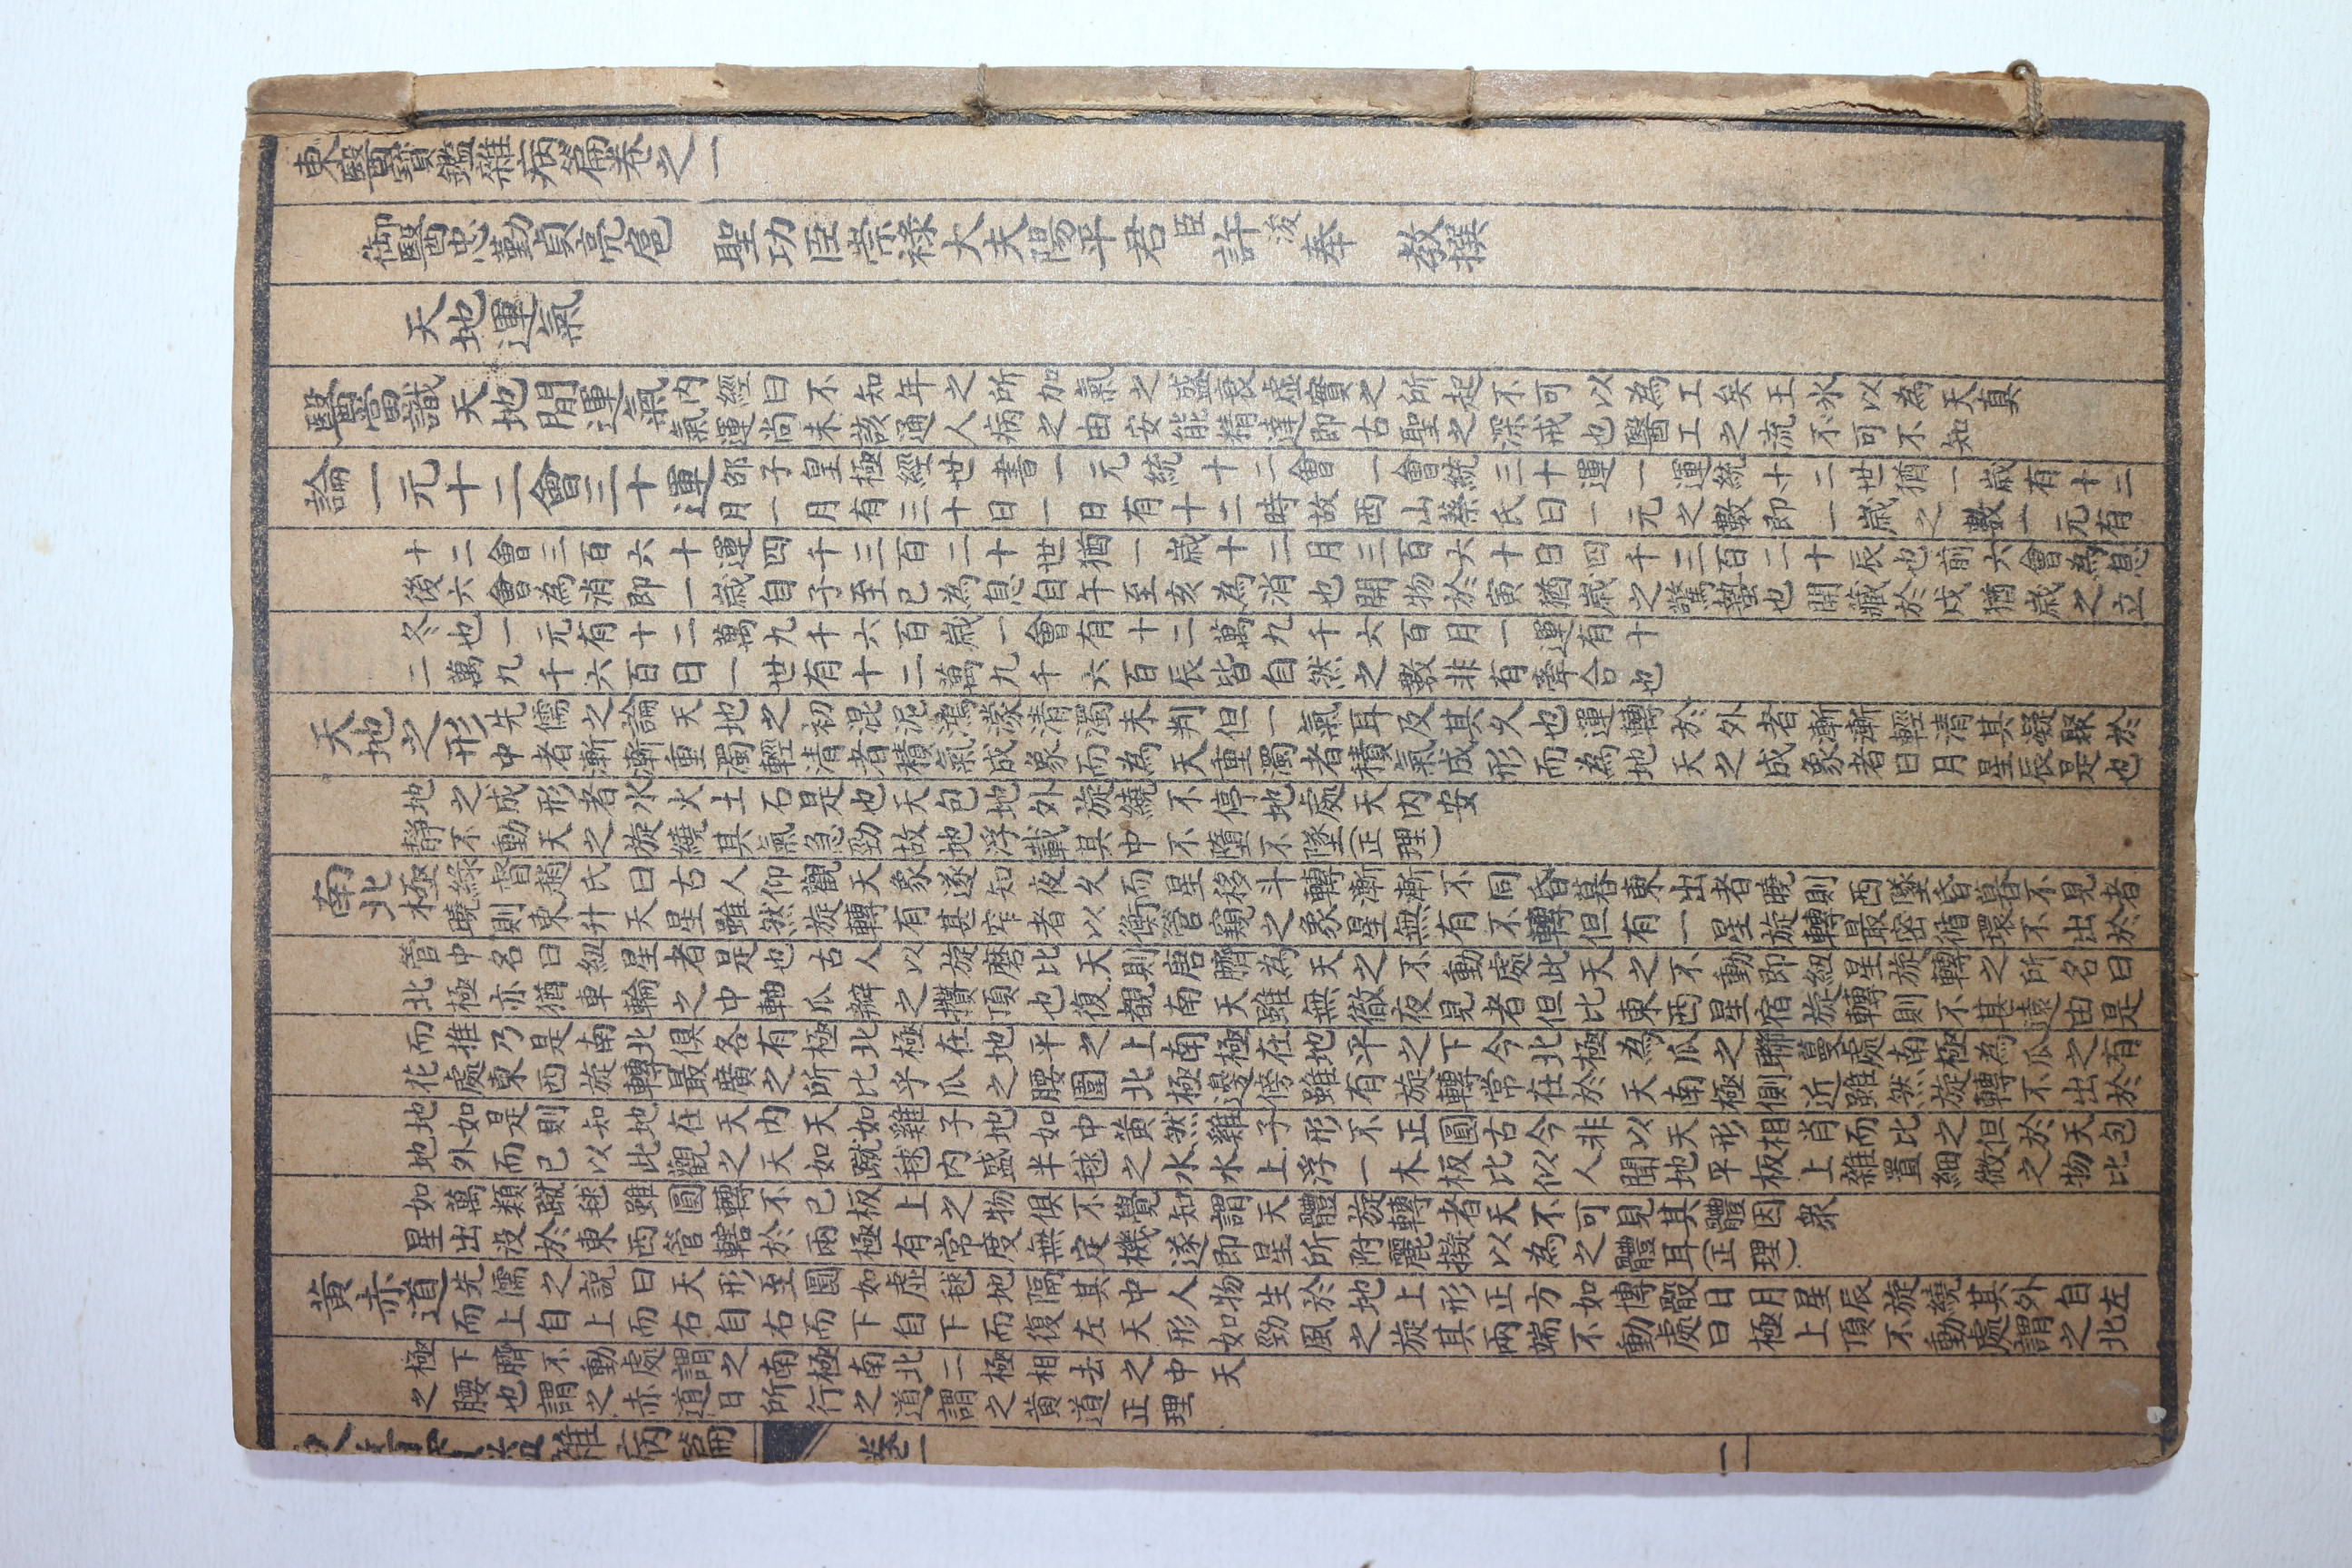 東醫寶鑑雜病篇卷之一
御醫忠勤貞亮扈 聖功臣崇祿大夫陽平君臣許浚奉 教撰
天地運氣
醫當識天地間運氣
內經曰不知年之所加氣之盛衰虛實之所起不可以為工矣王氷以為天真
氣運尚未該通人病之由安能精達即古聖之深戒也醫工之流不可不知
論一元十二會三十運
邵子皇極經世書一元統十二會一會統三十運一運統十二世猶一歲有十二
月一月有三十日一日有十二時故西山蔡氏曰一元之數即一歲之數一元有
十二會三百六十運四千三百二十世猶一歲十二月三百六十日四千三百二十辰也前六會為息
後六會為消即一歲自子至巳為息自午至亥為消也開物於寅猶歲之驚蟄也開藏於戌猶歲之立
冬也一元有十二萬九千六百歲一會有十二萬九千六百月一運有十
二萬九千六百日一世有十二萬九千六百辰皆自然之數非有牽合也
天地之形
先儒之論天地之初混泥鴻濛清濁未判但一氣耳及其久也運轉於外者漸漸輕清其凝聚於
中者漸漸重濁輕清者積氣成象而為天重濁者積氣成形而為地天之成象者日月星辰是也
地之成形者水火土石是也天包地外旋繞不停地處天內安
靜不動天之旋繞其氣急勁故地浮載其中不墮不墜(正理)
南北極
綠督趙氏曰古人仰觀天象遂知夜久而星移斗轉漸漸不同昏暮東出者曉則西墜昏暮不見者
曉則東升天星雖然旋轉有甚窄者以衡管窺之象星無有不轉但有一星旋轉最密循環不出於
管中名曰紐星者是也古人以旋磨比天則唐臍為天之不動處此天之不動即紐星旋轉之所名曰
北極亦猶車輪之中軸瓜瓣之攢頂也復覩南天雖無徹夜見者但比東西星宿旋轉則不甚遠由是
而推乃是南北俱各有極北極在地平之上南極在地平之下今北極為瓜之聯蔓處南極為瓜之有
花處東西旋轉最廣之所比乎瓜之腰圍北極邊傍雖有旋轉常在於天南極側近雖然旋轉不出於
地如是則知地在天內天如雞子地如中黃然雞子形不正圓古今非以天形相肖而比之但於天包
地外而已以此觀之天如蹴毬內盛半毬之水水上浮一木板比似人間地平板上雜置細微之物比
如萬類蹴毬雖圓轉不已板上之物俱不覺知謂天體旋轉者天不可見其體因衆
星出没於東西管轄於兩極有常度無定機遂即星所附麗擬以為之體耳(正理)
黃赤道
先儒之說曰天形至圓如虛毬地隔其中人物生於地上形正方如博骰日月星辰旋繞其外自左
而上自上而右自右而下自下而復左天形如勁風之旋其兩端不動處曰極上頂不動處謂之北
極下臍不動處謂之南極南北二極相去之中天
之腰也謂之赤道日所行之道謂之黃道正理
雜病篇 卷一
一